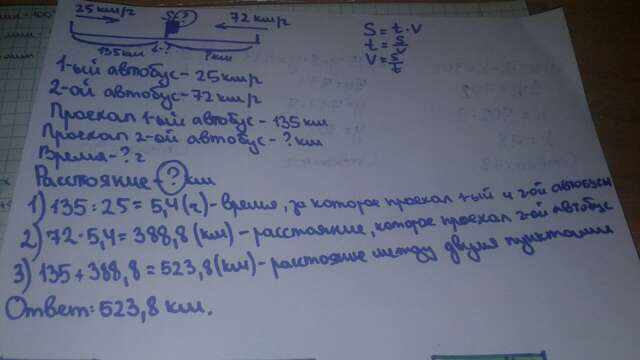 25 км/г
S-?
72 км/г
135 км
t-?
? км
S = t · V
t = S/V
V = S/t
1-ый автобус - 25 км/г
2-ой автобус - 72 км/г
Проехал 1-ый автобус - 135 км
Проехал 2-ой автобус - ? км
Время - ? г
Расстояние - ? км
1) 135 : 25 = 5,4 (г) - время, за которое проехал 1-ый и 2-ой автобусы
2) 72 · 5,4 = 388,8 (км) - расстояние, которое проехал 2-ой автобус
3) 135 + 388,8 = 523,8 (км) - расстояние между двумя пунктами
Ответ: 523,8 км.